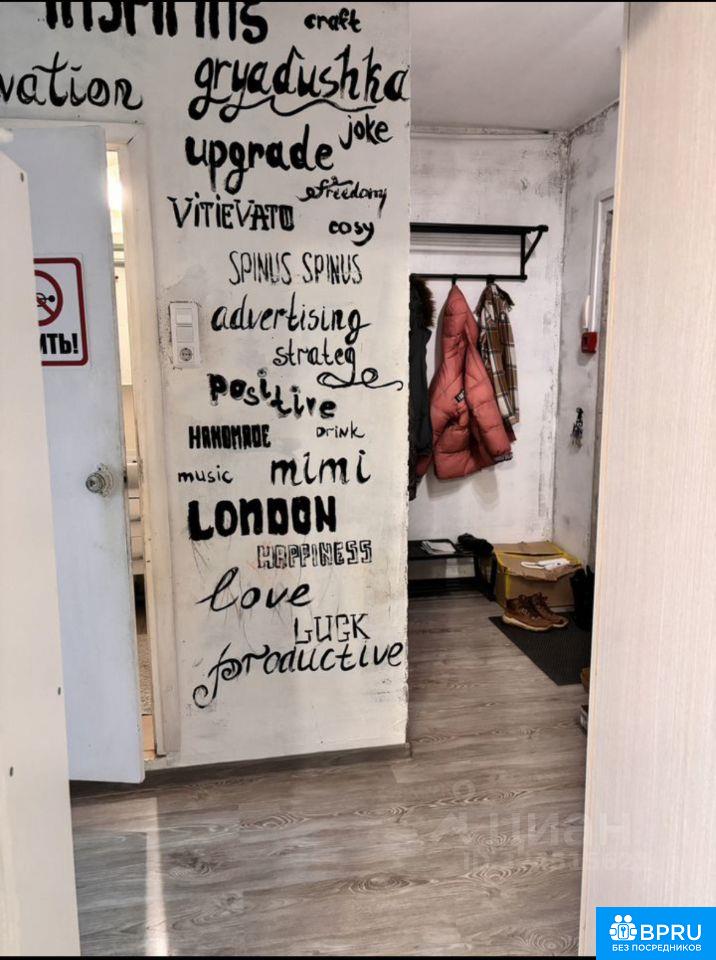 craft
vation
gryadushka
joke
upgrade
freedomy
VITIEVATO
cosy
SPINUS SPINUS
advertising
ИТЬ!
strateg
positive
HANDMADE
DRINK
music
mimi
LONDON
HAPPINESS
love
LUCK
productive
ЦИАН
BPRU
БЕЗ ПОСРЕДНИКОВ